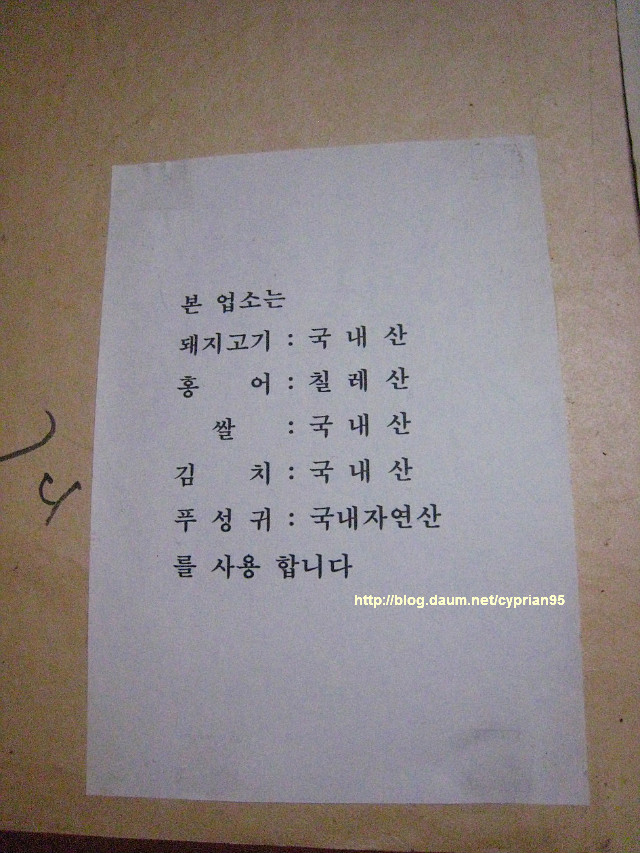 본 업소는
돼지고기 : 국 내 산
홍 어 : 칠 레 산
쌀 : 국 내 산
김 치 : 국 내 산
푸 성 귀 : 국내자연산
를 사용 합니다
http://blog.daum.net/cyprian95